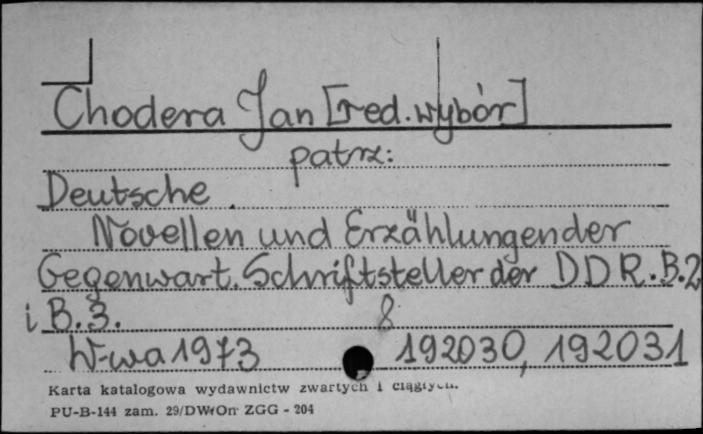 Chodera Jan [red. wybór]
patrz:
Deutsche
Novellen und Erzählungen der
Gegenwart. Schriftsteller der DDR. B.2
i B.3. 8
W-wa 1973 192030, 192031
Karta katalogowa wydawnictw zwartych i ciągłych.
PU-B-144 zam. 29/DWOn ZGG - 204